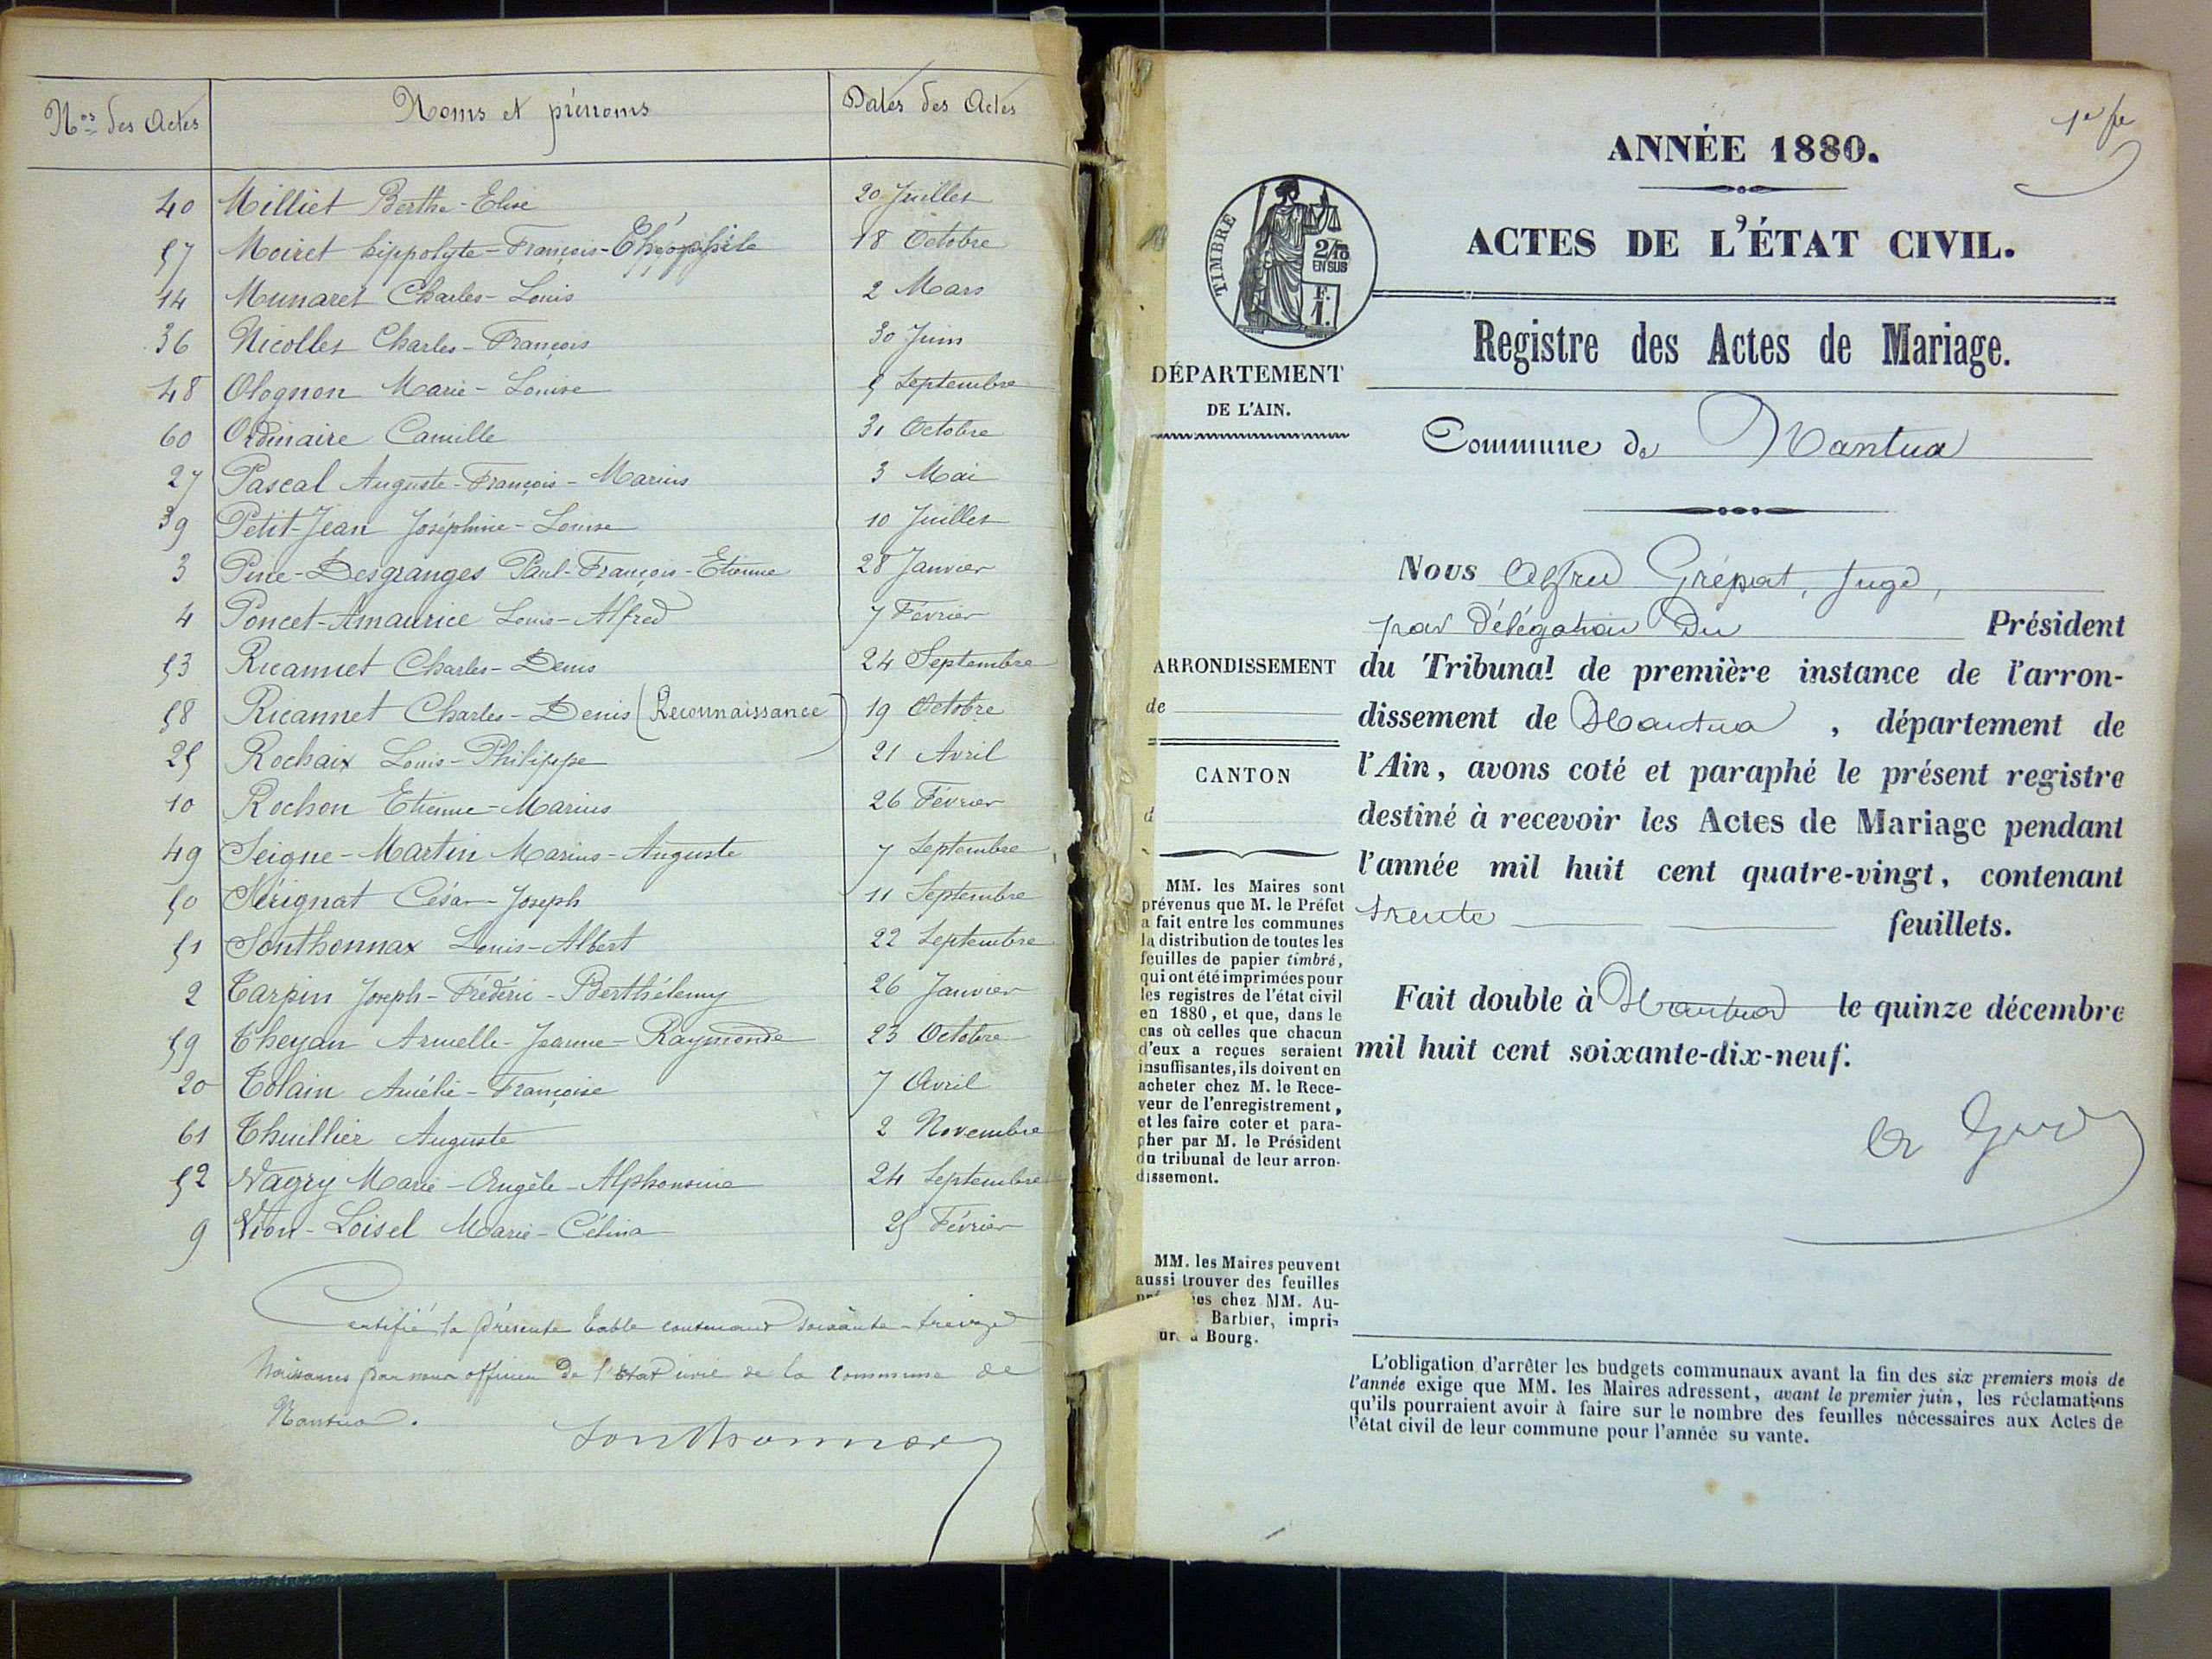 Nos des Actes Noms et prénoms Dates des Actes
40 Milliet Berthe-Elise 20 Juillet
57 Moiret hippolyte-François-Théophile 18 Octobre
14 Munaret Charles-Louis 2 Mars
36 Nicollet Charles-François 30 Juin
48 Olognon Marie-Louise 5 Septembre
60 Ordinaire Camille 31 Octobre
27 Pascal Auguste-François-Marius 3 Mai
39 Petit-Jean Joséphine-Louise 10 Juillet
3 Pine-Desgranges Paul-François-Etienne 28 Janvier
4 Poncet-Amaurice Louis-Alfred 7 Février
53 Ricannet Charles-Denis 24 Septembre
58 Ricannet Charles-Denis (Reconnaissance) 19 Octobre
25 Rochaix Louis-Philippe 21 Avril
10 Rochon Etienne-Marius 26 Février
49 Seigne-Martin Marius-Auguste 7 Septembre
50 Sérignat César-Joseph 11 Septembre
51 Sonthonnax Louis-Albert 22 Septembre
2 Tarpin Joseph-Frédéric-Berthélemy 26 Janvier
59 Theyan Armelle-Jeanne-Raymonde 23 Octobre
20 Tolain Amélie-Françoise 7 Avril
61 Thuillier Auguste 2 Novembre
52 Vagry Marie-Angèle-Alphonsine 24 Septembre
9 Vion-Loisel Marie-Célina 25 Février
Certifié la présente table contenant soixante-treize
Naissances par nous officier de l'état civil de la commune de
Nantua.
Sonthonnax
1er fe
ANNÉE 1880.
ACTES DE L'ÉTAT CIVIL.
TIMBRE
2/10
EN SUS
F.
1.
Registre des Actes de Mariage.
DÉPARTEMENT
DE L'AIN.
Commune de Nantua
Nous Alfred Grépat, Juge,
par délégation du Président
du Tribunal de première instance de l'arron-
dissement de Nantua, département de
l'Ain, avons coté et paraphé le présent registre
destiné à recevoir les Actes de Mariage pendant
l'année mil huit cent quatre-vingt, contenant
trente feuillets.
Fait double à Nantua le quinze décembre
mil huit cent soixante-dix-neuf.
ARRONDISSEMENT
de
CANTON
d
MM. les Maires sont
prévenus que M. le Préfet
a fait entre les communes
la distribution de toutes les
feuilles de papier timbré,
qui ont été imprimées pour
les registres de l'état civil
en 1880, et que, dans le
cas où celles que chacun
d'eux a reçues seraient
insuffisantes, ils doivent en
acheter chez M. le Rece-
veur de l'enregistrement,
et les faire coter et para-
pher par M. le Président
du tribunal de leur arron-
dissement.
MM. les Maires peuvent
aussi trouver des feuilles
chez MM. Au-
Barbier, impri-
à Bourg.
L'obligation d'arrêter les budgets communaux avant la fin des six premiers mois de
l'année exige que MM. les Maires adressent, avant le premier juin, les réclamations
qu'ils pourraient avoir à faire sur le nombre des feuilles nécessaires aux Actes de
l'état civil de leur commune pour l'année su vante.